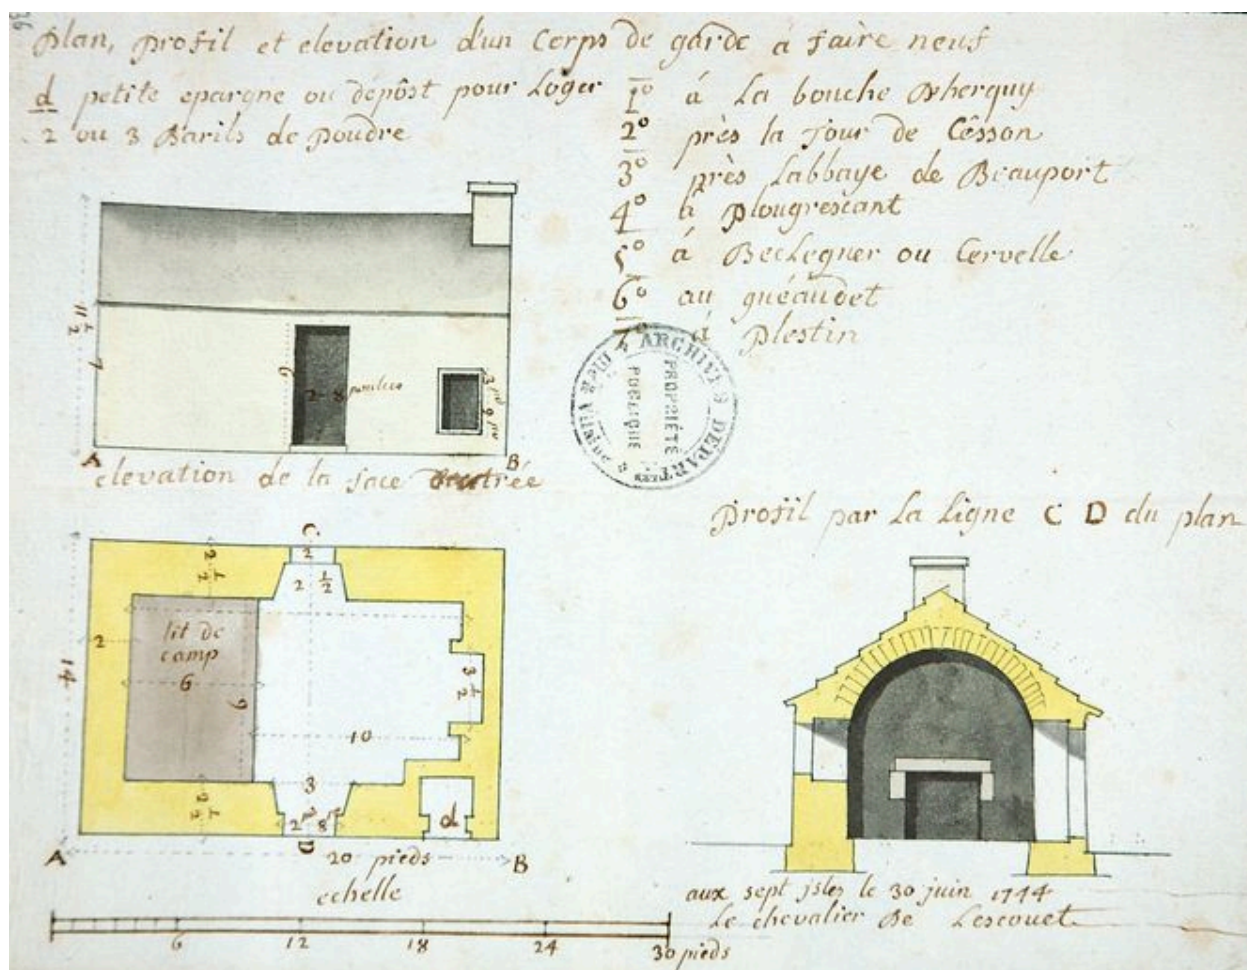 36
plan, profil et elevation d'un Corps de garde à faire neuf
d petite epargne ou dépôst pour Loger
2 ou 3 Barils de poudre
1º à La bouche Dherquy
2º près la Tour de Cêsson
3º près Labbaye de Beauport
4º à plougrescant
5º à Beclegner ou Cervelle
6º au guéaudet
7º à plestin
11 1/2
7
6
2 - 8 pouces
3 pd
9 po
A
B
elevation de la face dentrée
ARCHIVES DEPARTles
PROPRIÉTÉ
PUBLIQUE
profil par La Ligne C D du plan
C
2
2 1/2
2 1/2
lit de
camp
6
9
2
14
3 1/2
10
3
2 1/2
2 pd 8 po
d
D
A
20 pieds
B
echelle
6 12 18 24 30 pieds
aux sept isles le 30 juin 1744
Le chevalier De Lescouet